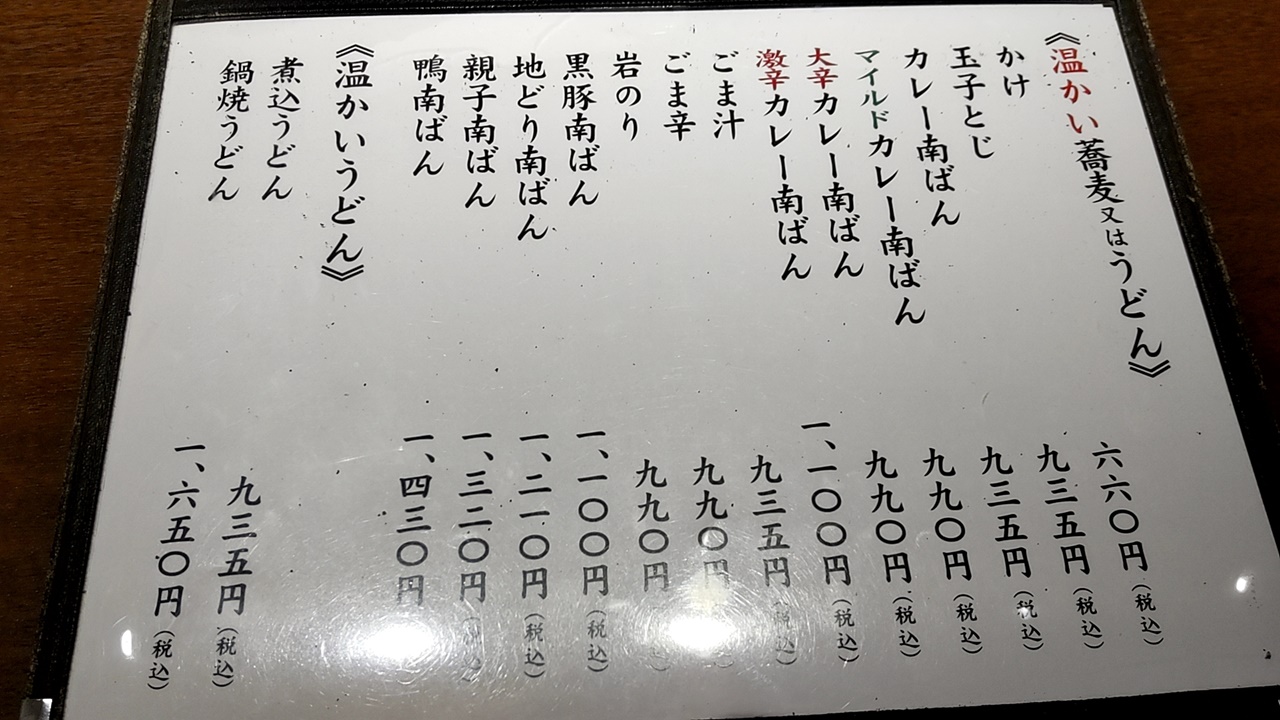 《温かい蕎麦又はうどん》
かけ 六六〇円（税込）
玉子とじ 九三五円（税込）
カレー南ばん 九三五円（税込）
マイルドカレー南ばん 九九〇円（税込）
大辛カレー南ばん 九九〇円（税込）
激辛カレー南ばん 一、一〇〇円（税込）
ごま汁 九三五円（税込）
ごま辛 九九〇円
岩のり 九九〇円（税込）
黒豚南ばん 一、一〇〇円（税込）
地どり南ばん 一、二一〇円（税込）
親子南ばん 一、三二〇円（税込）
鴨南ばん 一、四三〇円
《温かいうどん》
煮込うどん 九三五円（税込）
鍋焼うどん 一、六五〇円（税込）